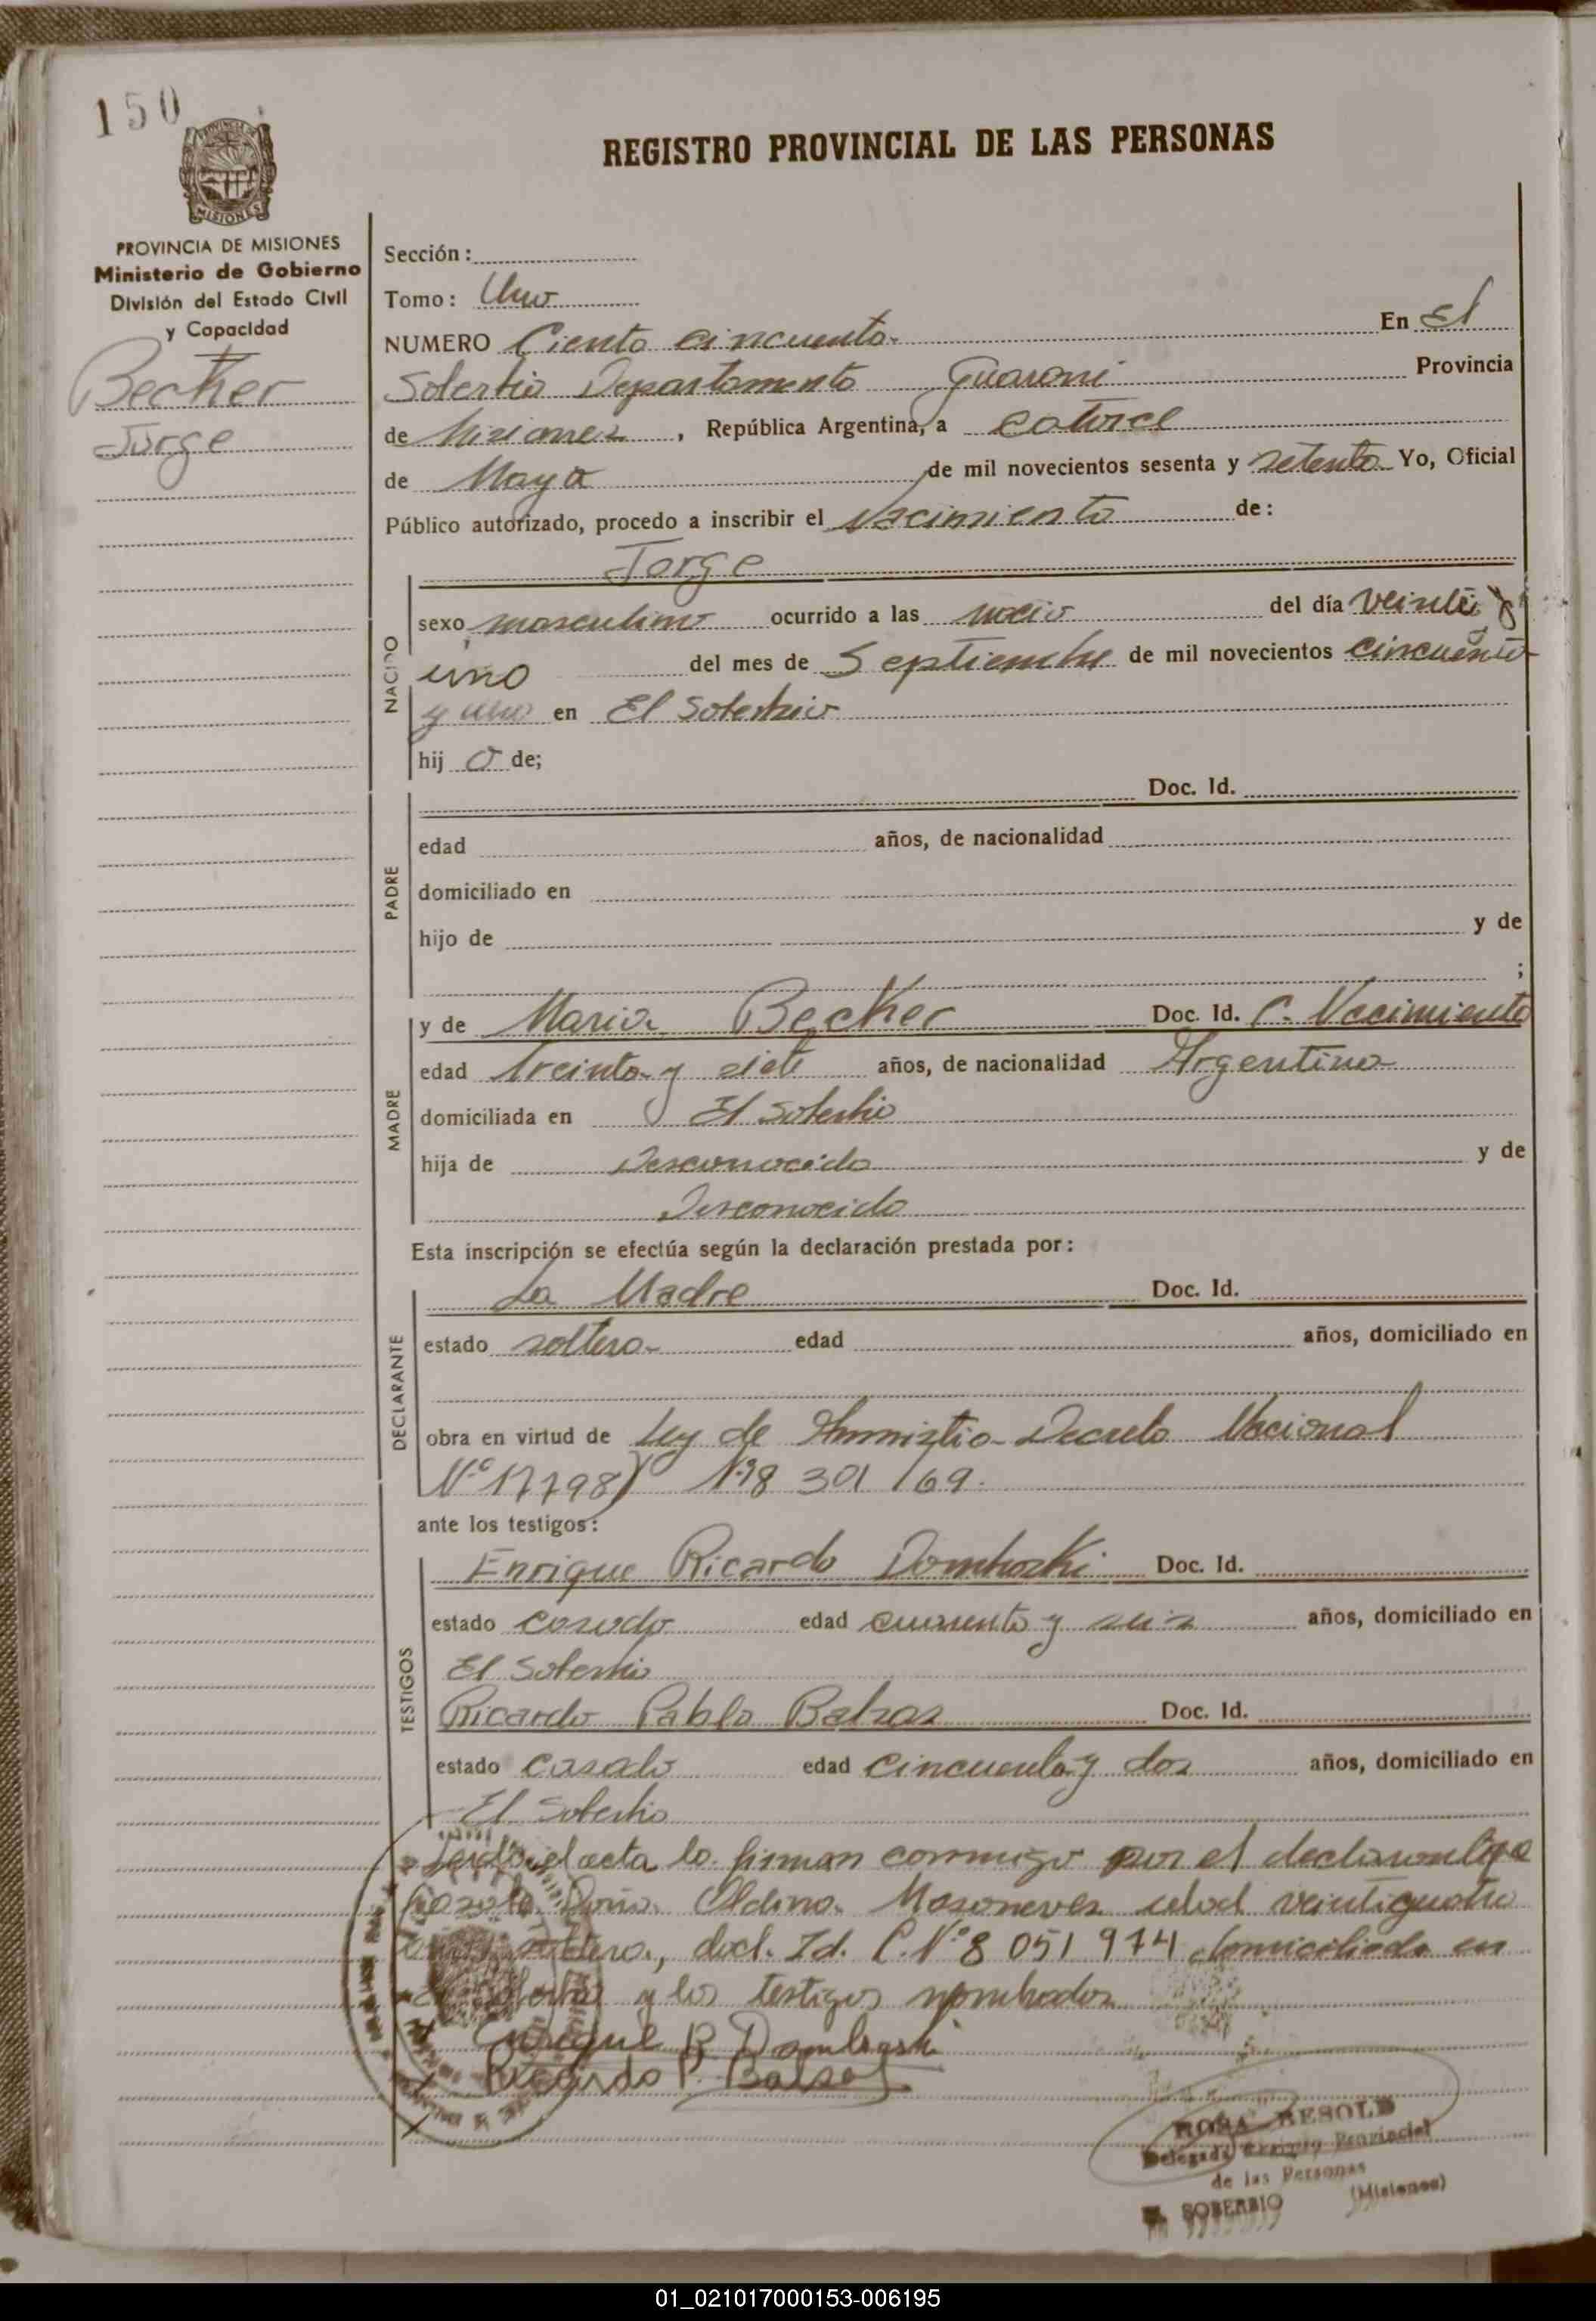 150
REGISTRO PROVINCIAL DE LAS PERSONAS
PROVINCIA DE MISIONES
MISIONES
PROVINCIA DE MISIONES
Ministerio de Gobierno
División del Estado Civil
y Capacidad
Becker
Jorge
Sección:
Tomo: Uno
NUMERO Ciento cincuenta. En El
Soberbio Departamento Guarani Provincia
de Misiones, República Argentina, a catorce
de Mayo de mil novecientos sesenta y setenta Yo, Oficial
Público autorizado, procedo a inscribir el Nacimiento de:
Jorge
NACIDO
sexo masculino ocurrido a las del día veinte y
uno del mes de Septiembre de mil novecientos cincuenta
y uno en El Soberbio
hijo de;
PADRE
Doc. Id.
edad años, de nacionalidad
domiciliado en
hijo de y de
;
MADRE
y de Maria Becker Doc. Id. C. Nacimiento
edad treinta y siete años, de nacionalidad Argentina
domiciliada en El Soberbio
hija de Desconocido y de
Desconocido
Esta inscripción se efectúa según la declaración prestada por:
DECLARANTE
La Madre Doc. Id.
estado soltera edad años, domiciliado en
obra en virtud de Ley de Amnistia Decreto Nacional
Nº 17798) Nº 8 301 /69.
ante los testigos:
TESTIGOS
Enrique Ricardo Dombroski Doc. Id.
estado casado edad cuarenta y seis años, domiciliado en
El Soberbio
Ricardo Pablo Balzas Doc. Id.
estado casado edad cincuenta y dos años, domiciliado en
El Soberbio
Leida el acta la firman conmigo por el declarante
Doña Aldina edad veinticuatro
soltera, docl. Id. C. Nº 8 051 974 domiciliada en
y los testigos nombrados
Enrique R Dombroski
Ricardo P. Balzas
ROSA BESOLD
Delegada Provincial
de las Personas
SOBERBIO (Misiones)
01_021017000153-006195